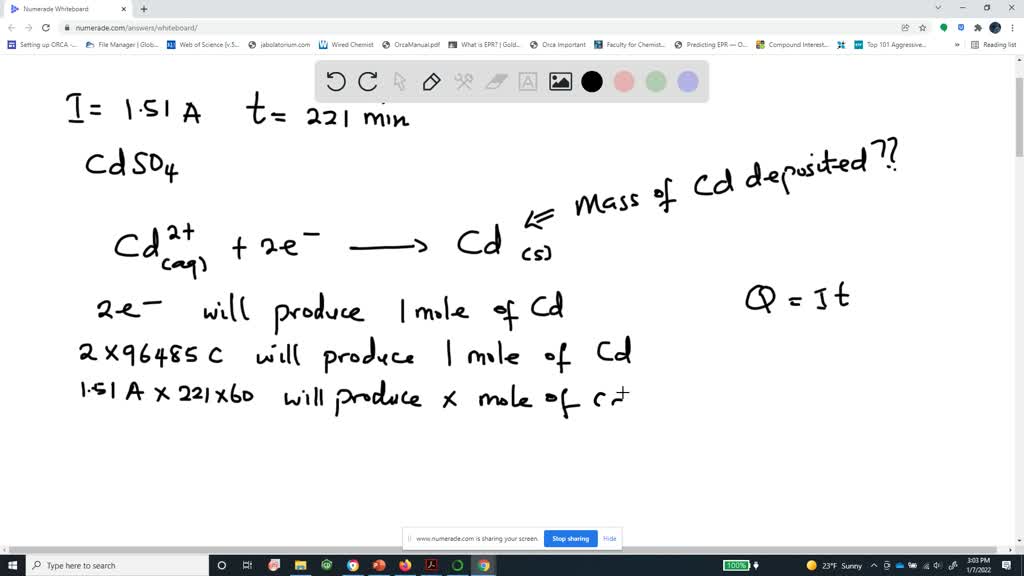 Numerade Whiteboard
numerade.com/answers/whiteboard/
Setting up ORCA -... File Manager | Glob... Web of Science [v.5... jabolatorium.com Wired Chemist OrcaManual.pdf What is EPR? | Gold... Orca Important Faculty for Chemist... Predicting EPR — O... Compound Interest... Top 101 Aggressive... » Reading list
I = 1.51 A t = 221 min
CdSO4
Mass of Cd deposited??
Cd2+(aq) + 2e− → Cd(s)
2e− will produce 1 mole of Cd
Q = It
2×96485 C will produce 1 mole of Cd
1.51 A × 221×60 will produce x mole of
www.numerade.com is sharing your screen. Stop sharing Hide
Type here to search
100% 23°F Sunny 3:03 PM
1/7/2022